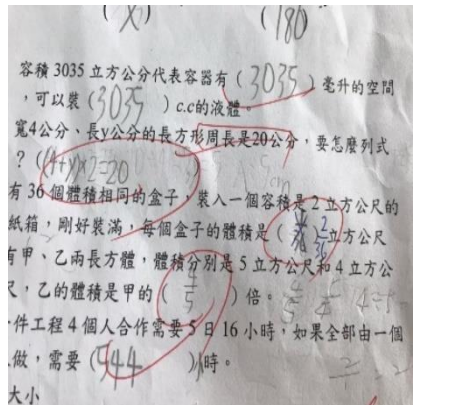 ( X )
( 180 )
容積 3035 立方公分代表容器有 ( 3035 ) 毫升的空間
,可以裝 ( 3035 ) c.c的液體。
寬4公分、長y公分的長方形周長是20公分,要怎麼列式
? ( (4+y)×2=20
有 36 個體積相同的盒子,裝入一個容積是 2 立方公尺的
紙箱,剛好裝滿,每個盒子的體積是 ( 2/36 ) 立方公尺
有甲、乙兩長方體,體積分別是 5 立方公尺和 4 立方公
尺,乙的體積是甲的 ( 4/5 ) 倍。
件工程 4 個人合作需要 5 日 16 小時,如果全部由一個
做,需要 ( 544 ) 小時。
大小